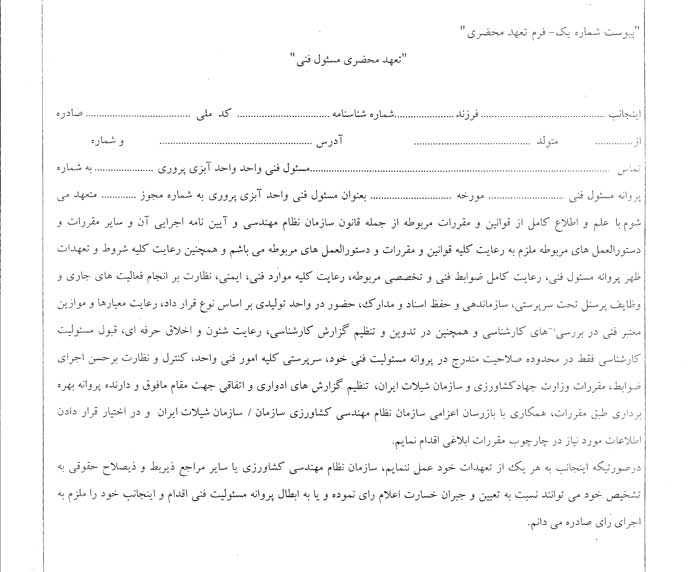 "پیوست شماره یک- فرم تعهد محضری"
"تعهد محضری مسئول فنی"
اینجانب ............ فرزند ............ شماره شناسنامه ............ کد ملی ............ صادره
از ............ متولد ............ آدرس ............ و شماره
تماس ............ مسئول فنی واحد واحد آبزی پروری ............ به شماره
پروانه مسئول فنی ............ مورخه ............ بعنوان مسئول فنی واحد آبزی پروری به شماره مجوز ............ متعهد می
شوم با علم و اطلاع کامل از قوانین و مقررات مربوطه از جمله قانون سازمان نظام مهندسی و آیین نامه اجرایی آن و سایر مقررات و
دستورالعمل های مربوطه ملزم به رعایت کلیه قوانین و مقررات و دستورالعمل های مربوطه می باشم و همچنین رعایت کلیه شروط و تعهدات
ظهر پروانه مسئول فنی، رعایت کامل ضوابط فنی و تخصصی مربوطه، رعایت کلیه موارد فنی، ایمنی، نظارت بر انجام فعالیت های جاری و
وظایف پرسنل تحت سرپرستی، سازماندهی و حفظ اسناد و مدارک، حضور در واحد تولیدی بر اساس نوع قرار داد، رعایت معیارها و موازین
معتبر فنی در بررسی های کارشناسی و همچنین در تدوین و تنظیم گزارش کارشناسی، رعایت شئون و اخلاق حرفه ای، قبول مسئولیت
کارشناسی فقط در محدوده صلاحیت مندرج در پروانه مسئولیت فنی خود، سرپرستی کلیه امور فنی واحد، کنترل و نظارت برحسن اجرای
ضوابط، مقررات وزارت جهادکشاورزی و سازمان شیلات ایران، تنظیم گزارش های ادواری و اتفاقی جهت مقام مافوق و دارنده پروانه بهره
برداری طبق مقررات، همکاری با بازرسان اعزامی سازمان نظام مهندسی کشاورزی سازمان / سازمان شیلات ایران و در اختیار قرار دادن
اطلاعات مورد نیاز در چارچوب مقررات ابلاغی اقدام نمایم.
درصورتیکه اینجانب به هر یک از تعهدات خود عمل ننمایم، سازمان نظام مهندسی کشاورزی یا سایر مراجع ذیربط و ذیصلاح حقوقی به
تشخیص خود می توانند نسبت به تعیین و جبران خسارت اعلام رای نموده و یا به ابطال پروانه مسئولیت فنی اقدام و اینجانب خود را ملزم به
اجرای رای صادره می دانم.